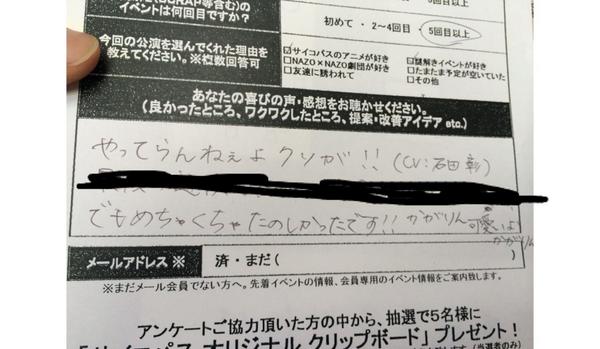 (SCRAP等含む)の
イベントは何回目ですか?
初めて ・ 2~4回目 ・ 5回目以上
今回の公演を選んでくれた理由を
教えてください。※複数回答可
☑サイコパスのアニメが好き
□NAZO×NAZO劇団が好き
□友達に誘われて
☑謎解きイベントが好き
□たまたま予定が空いていた
□その他
あなたの喜びの声・感想をお聴かせください。
(良かったところ、ワクワクしたところ、提案・改善アイデア etc.)
やってらんねぇよ クソが!! (CV:石田 彰)
でもめちゃくちゃたのしかったです!! かがりん可愛いよ
かがりん
メールアドレス ※
済・まだ( )
※まだメール会員でない方へ。先着イベントの情報、会員専用のイベント情報をご案内致します。
アンケートご協力頂いた方の中から、抽選で5名様に
「サイコパス オリジナル クリップボード」プレゼント!
(当選者のみ)